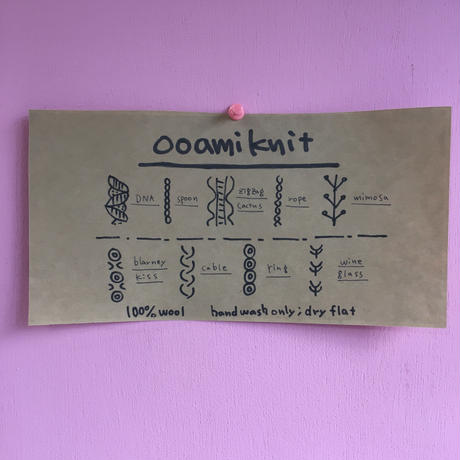 ooamiknit
DNA
spoon
zigzag
cactus
rope
mimosa
blarney
kiss
cable
ring
wine
glass
100% wool hand wash only; dry flat